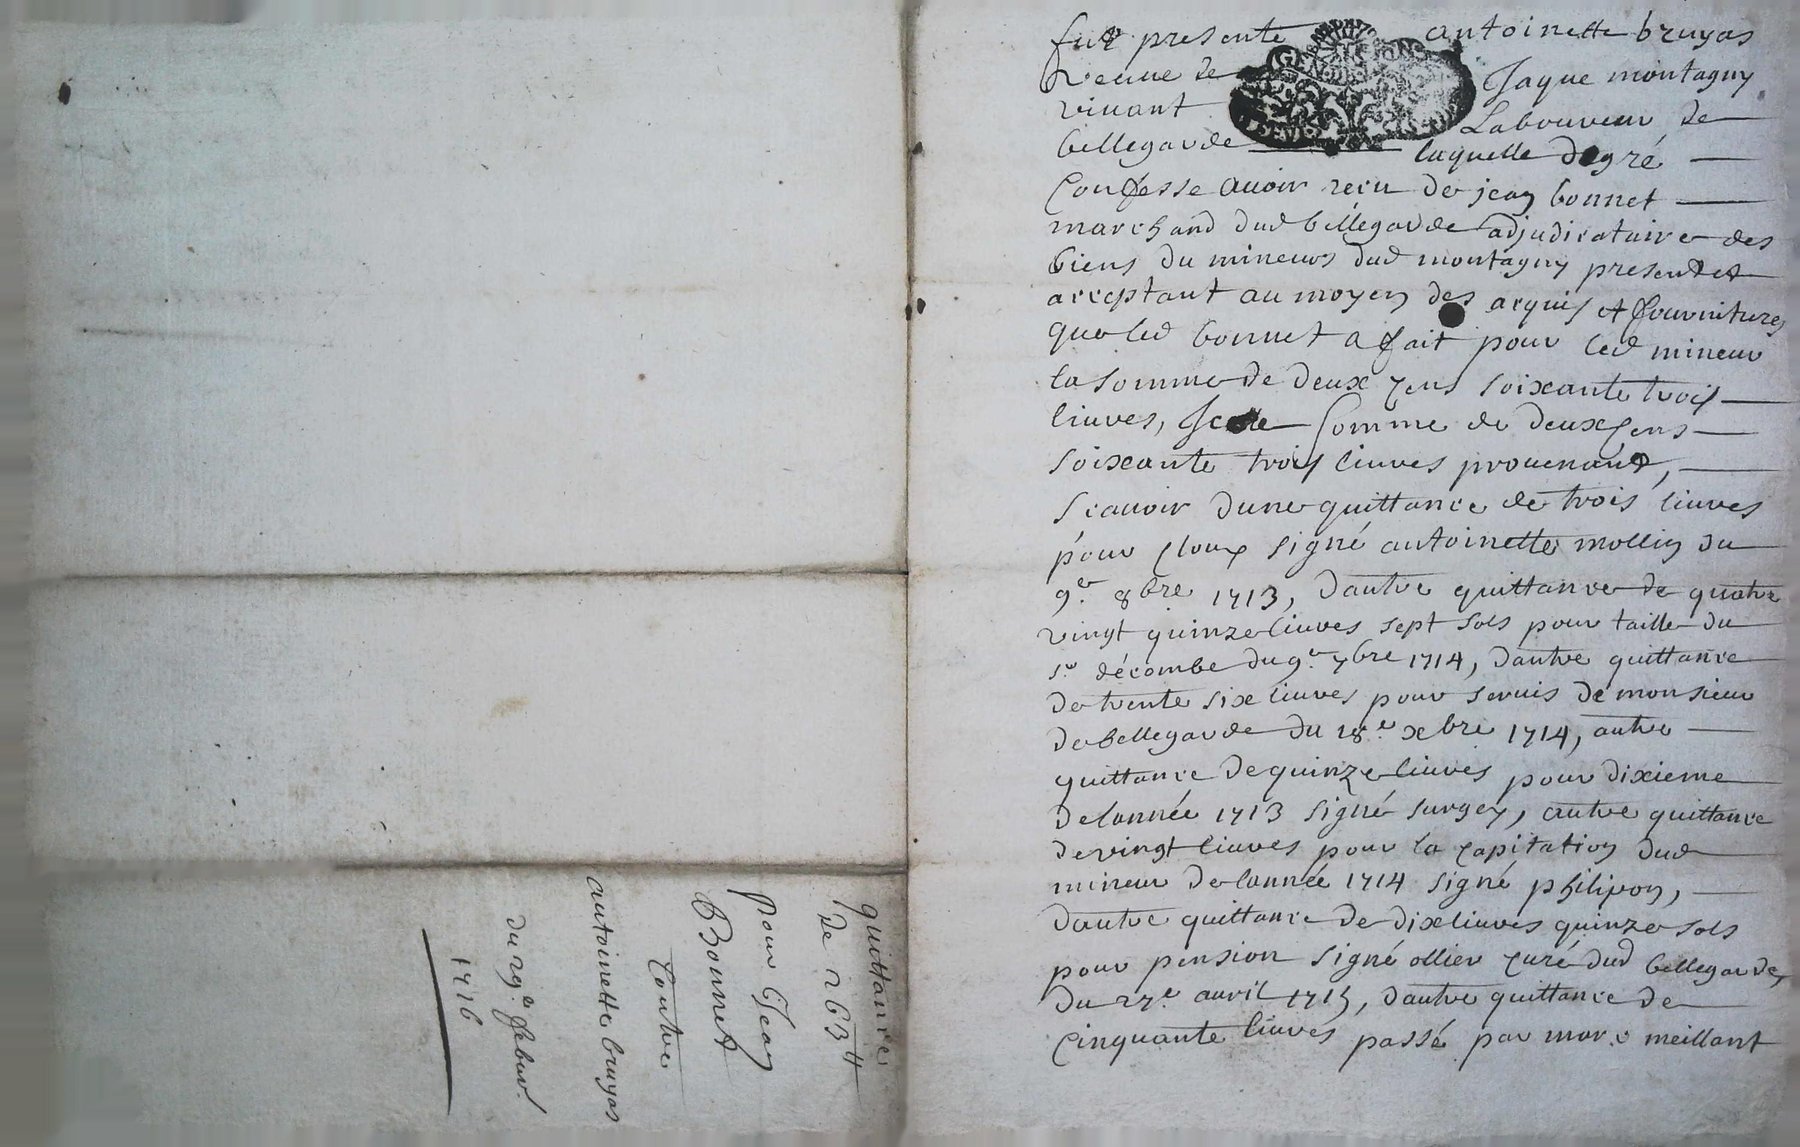 fut presente antoinette bruyas
veuue de Jaque montagny
viuant Laboureur de
bellegarde laquelle de gré
Confesse auoir recu de jean bonnet
marchand dud bellegarde adjudicataire des
biens du mineurs dud montagny present et
acceptant au moyen des acquis et fournitures
que led bonnet a fait pour led mineur
la somme de deux cens soixante trois
liures, Icelle Somme de deux cens
soixante trois liures prouenant,
scauoir dune quittance de trois liures
pour cloux signé antoinette mollin du
9e. 8bre 1713, dautre quittance de quatre
vingt quinze liures sept sols pour taille du
sr. décombe du 9e. 7bre 1714, dautre quittance
de trente six liures pour seruis de monsieur
de bellegarde du 18e. xbre 1714, autre
quittance de quinze liures pour dixieme
de lannée 1713 signé surgey, autre quittance
de vingt liures pour la capitation dud
mineur de lannée 1714 signé philipon,
dautre quittance de dix liures quinze sols
pour pension signé ollier curé dud bellegarde,
du 27e. auril 1715, dautre quittance de
cinquante liures passé par marc meillant
quittance
de 263tt
pour Jean
Bonnet
Contre
antoinette bruyas
du 19e. febur.
1716